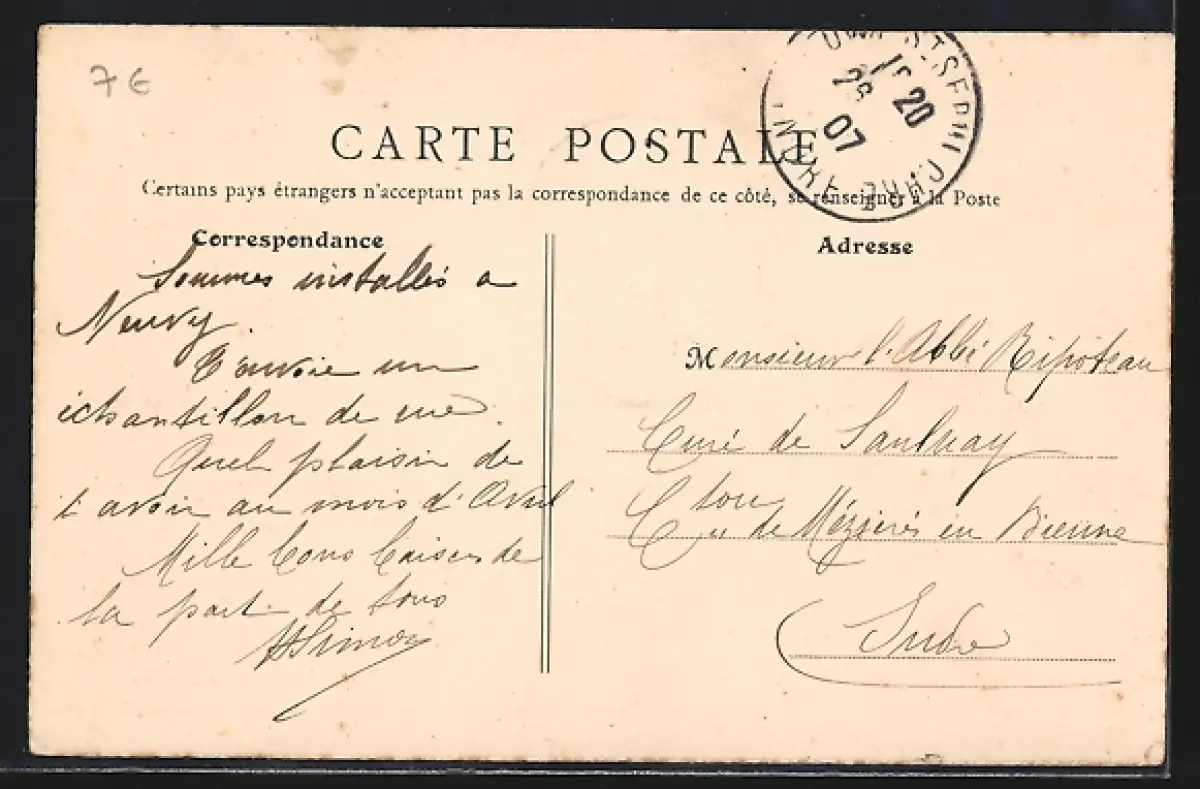 7 €
CARTE POSTALE
Certains pays étrangers n'acceptant pas la correspondance de ce côté, se renseigner à la Poste
Correspondance
Sommes installés a
Neuvy.
T'envoie un
échantillon de vue.
Quel plaisir de
t'avoir au mois d'Avril
Mille bons baisers de
la part de tous
HSimon
Adresse
Monsieur l'Abbé Ripoteau
Curé de Saulnay
Cton de Mézières en Brenne
Indre
20
07